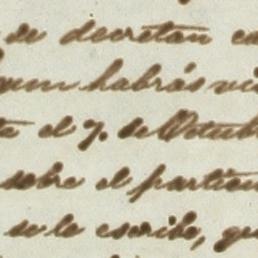 de decretan
habrás
el 7. de Octub
sobre el particu
se le escribe, qu